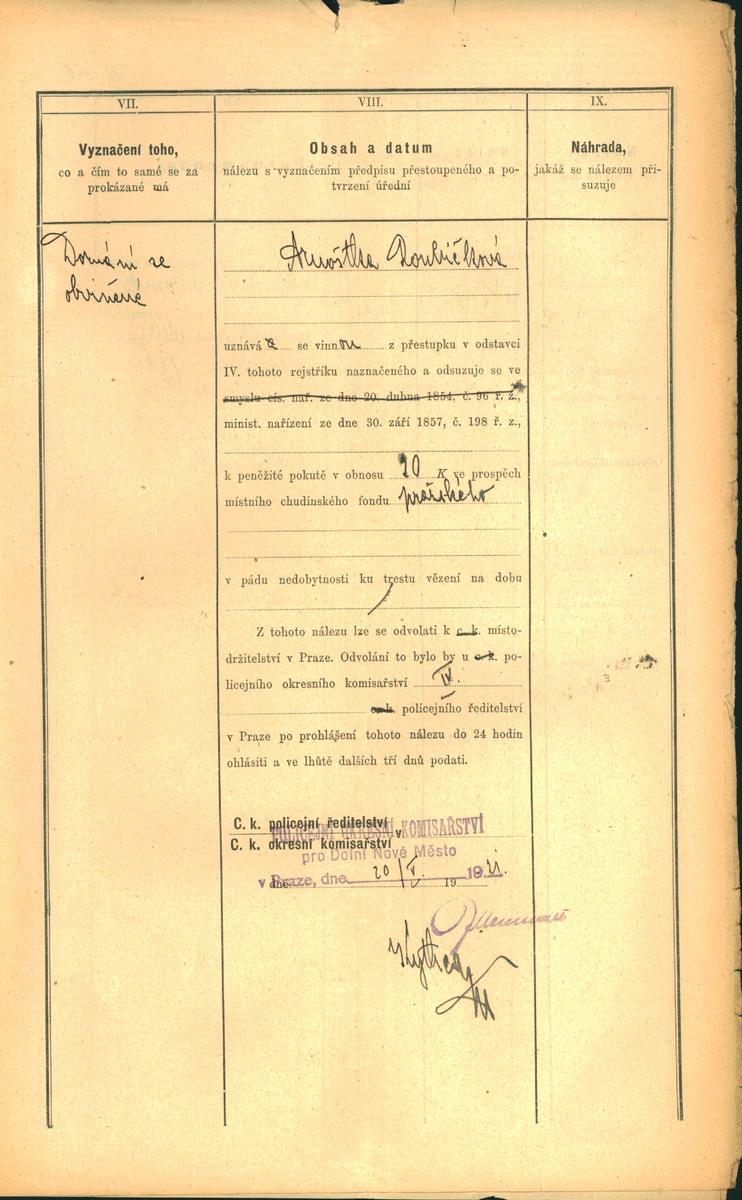 VII.
Vyznačení toho,
co a čím to samé se za
prokázané má
VIII.
Obsah a datum
nálezu s vyznačením předpisu přestoupeného a po-
tvrzení úřední
IX.
Náhrada,
jakáž se nálezem při-
suzuje
obviněné
Arnoštka
uznává se vinnou z přestupku v odstavci
IV. tohoto rejstříku naznačeného a odsuzuje se ve
smyslu cís. nař. ze dne 20. dubna 1854, č. 96 ř. z.,
minist. nařízení ze dne 30. září 1857, č. 198 ř. z.,
k peněžité pokutě v obnosu 20 K ve prospěch
místního chudinského fondu pražského
v pádu nedobytnosti ku trestu vězení na dobu
Z tohoto nálezu lze se odvolati k c. k. místo-
držitelství v Praze. Odvolání to bylo by u c. k. po-
licejního okresního komisařství IV.
c. k. policejního ředitelství
v Praze po prohlášení tohoto nálezu do 24 hodin
ohlásiti a ve lhůtě dalších tří dnů podati.
C. k. policejní ředitelství
POLICEJNÍ OKRESNÍ KOMISAŘSTVÍ
v
C. k. okresní komisařství
pro Dolní Nové Město
v Praze, dne 20/V. 1921.
dne 19